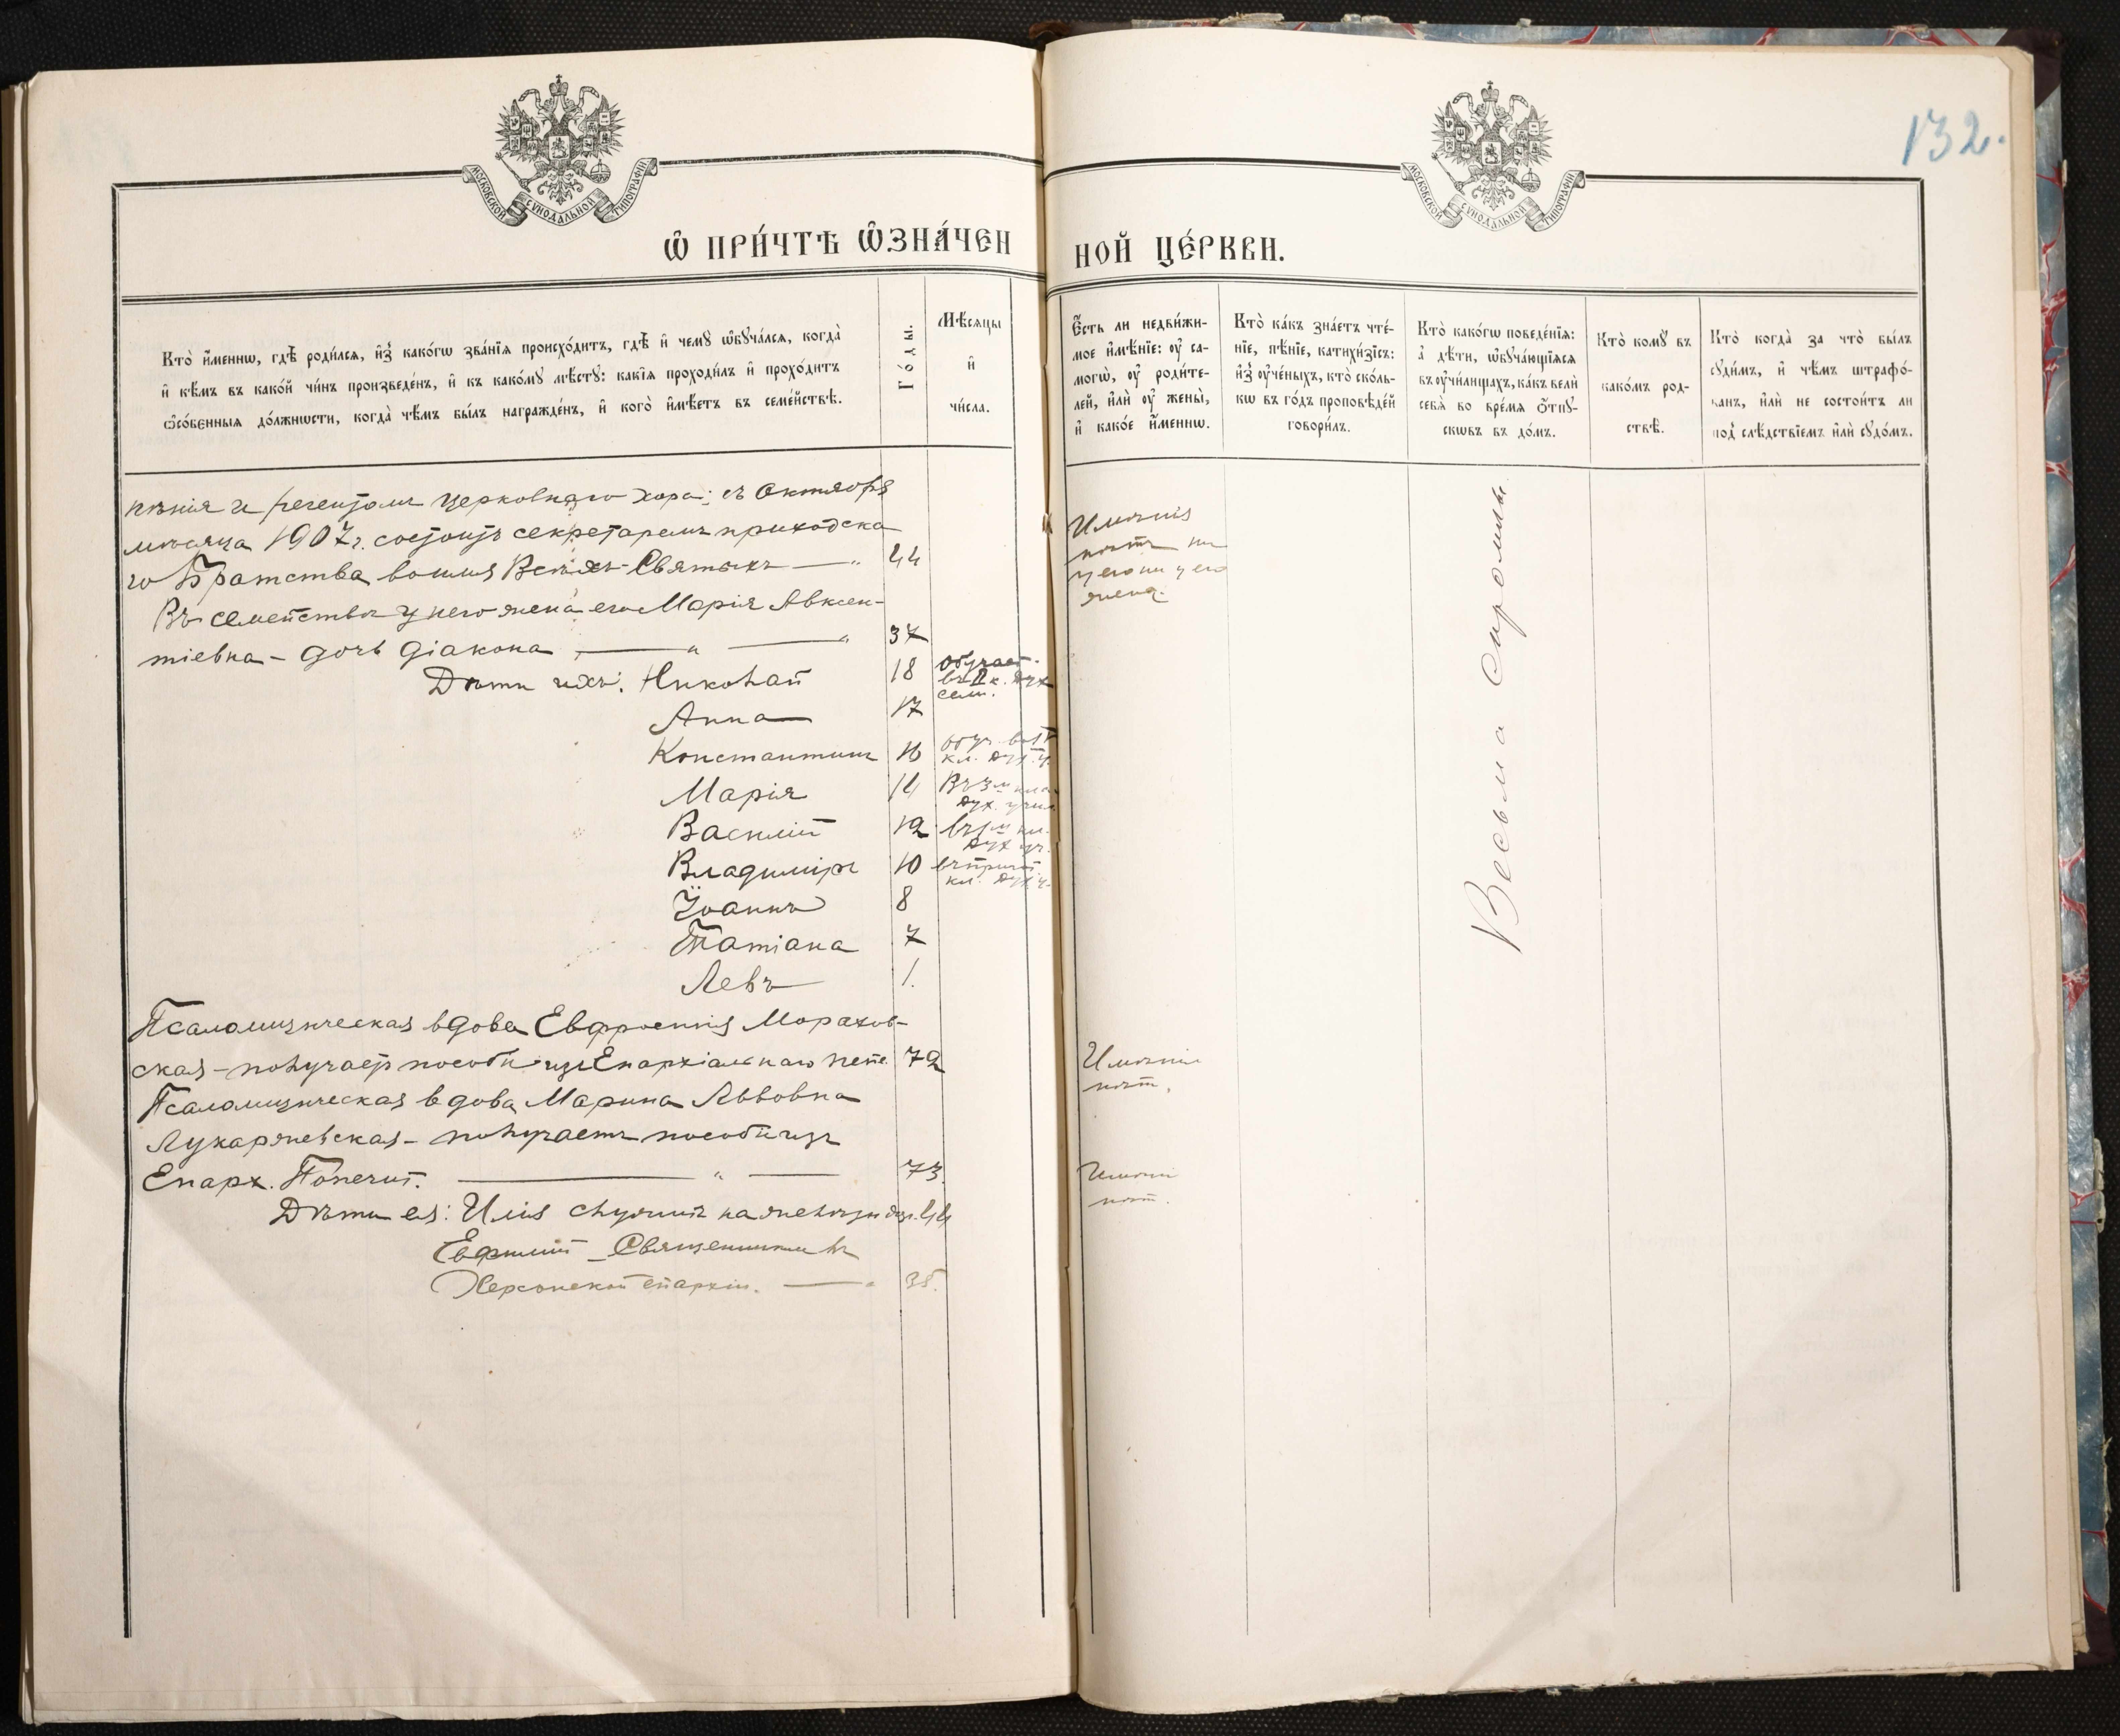 132.
МОСКОВСКОЙ СѴНОДАЛЬНОЙ ТИПОГРАФІИ
МОСКОВСКОЙ СѴНОДАЛЬНОЙ ТИПОГРАФІИ
Ѽ ПРИ́ЧТѢ ѼЗНА́ЧЕН
НОЙ ЦЕ́РКВИ.
Кто̀ и҆́меннѡ, гдѣ̀ роди́лсѧ, и҆з̾ како́гѡ зва́нїѧ происхо́дитъ, гдѣ̀ и҆ чемꙋ̀ ѡ҆бꙋча́лсѧ, когда̀
и҆ кѣ́мъ въ како́й чи́нъ произведе́нъ, и҆ къ како́мꙋ мѣ́стꙋ: какі̑ѧ проходи́лъ и҆ прохо́дитъ
ѻ҆со́бенныѧ до́лжнѡсти, когда̀ чѣ́мъ бы́лъ награжде́нъ, и҆ кого̀ и҆мѣ́етъ въ семе́йствѣ.
Го́ды.
Мѣ́сѧцы
и҆
чи́сла.
Е҆́сть ли недви́жи-
мое и҆мѣ́нїе: ᲂу҆ са-
могѡ̀, ᲂу҆ роди́те-
лей, и҆лѝ ᲂу҆ жены̀,
и҆ како́е и҆́меннѡ.
Кто̀ ка́къ зна́етъ чте́-
нїе, пѣ́нїе, катихи́зїсъ:
и҆з̾ ᲂу҆че́ныхъ, кто̀ ско́ль-
кѡ въ го́дъ проповѣ́дей
говори́лъ.
Кто̀ како́гѡ поведе́нїѧ:
а҆ дѣ́ти, ѡ҆бꙋча́ющїѧсѧ
въ ᲂу҆чи́лищахъ, ка́къ велѝ
себѧ̀ во вре́мѧ ѿпꙋ-
скѡвъ въ до́мъ.
Кто̀ комꙋ̀ въ
како́мъ род-
ствѣ̀.
Кто̀ когда̀ за что̀ бы́лъ
сꙋди́мъ, и҆ чѣ́мъ штрафо́-
ванъ, и҆лѝ не состои́тъ ли
под̾ слѣ́дствїемъ и҆лѝ сꙋдо́мъ.
пѣнія и регентомъ церковнаго хора; съ Октября
мѣсяца 1907 г. состоитъ секретаремъ приходска
го Братства во имя Всѣхъ Святыхъ — " 44
Въ семействѣ у него жена его Марія Авксен-
тіевна – дочь діакона — " — " 37
Дѣти ихъ: Николай 18 обучает.
въ II к. дух
сем.
Анна 17
Константинъ 16
кл. дух. у.
Марія 14 Въ 3м
дух. учил
Василій 12 въ 1м кл.
дух. уч.
Владиміръ 10 въ пригот
кл. дух. у.
Іоаннъ 8
Татіана 7
Левъ 1.
Псаломщическая вдова Евфросинія Морахов-
ская – получает пособіе изъ Епархіальнаго попе. 72
Псаломщическая вдова Марина Львовна
Лукаржевская – получаетъ пособіе изъ
Епарх. Попечит. — " — 73.
Дѣти ея: Илія служитъ на желѣзн. дор. 44
Евфимій – Священникъ въ
Херсонской епархіи. — " 38.
Имѣнія
нѣтъ ни
у его ни у его
жены.
Имѣнія
нѣтъ.
Имѣнія
нѣт.
Весьма скромны